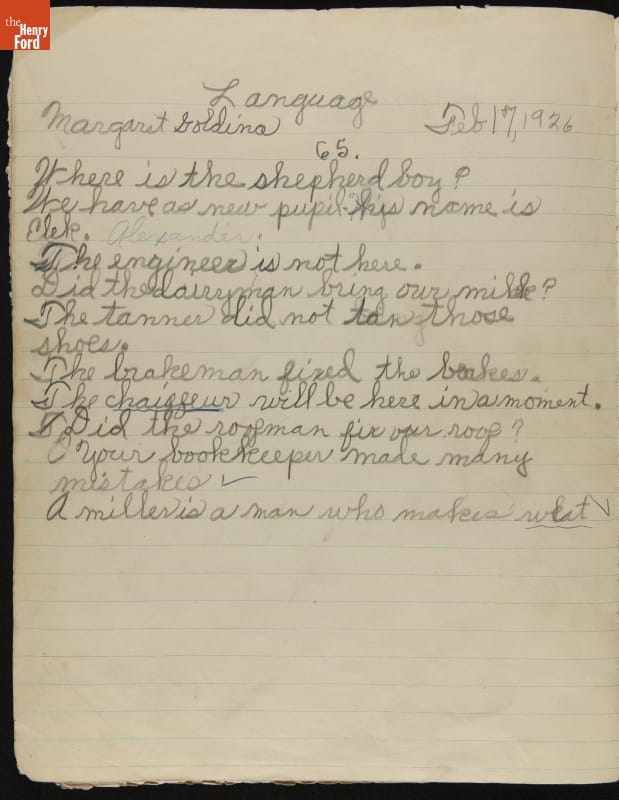 the Henry Ford
Language
Margaret Goldina Feb 17, 1926
65.
Where is the shepherd boy?
We have a new pupil his name is
Elek. Alexander.
The engineer is not here.
Did the dairyman bring our milk?
The tanner did not tan those
shoes.
The brakeman fixed the brakes.
The chaiffeur will be here in a moment.
Did the roofman fix our roof?
Your bookkeeper made many
mistakes
A miller is a man who makes weat